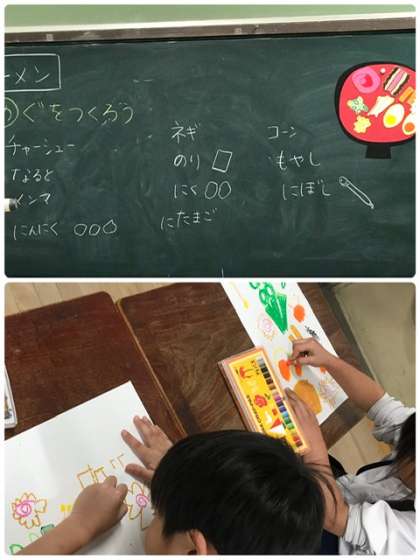 ーメン
ぐをつくろう
チャーシュー
なると
メンマ
にんにく
ネギ
のり
にく
にたまご
コーン
もやし
にぼし